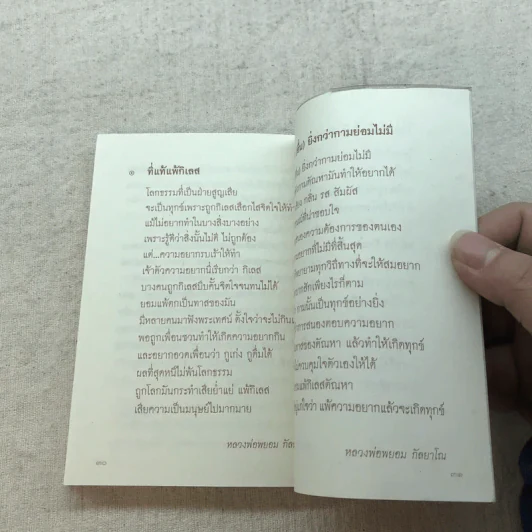 ๑ ที่แท้แพ้กิเลส
โลกธรรมที่เป็นฝ่ายสูญเสีย
จะเป็นทุกข์เพราะถูกกิเลสเลือกใส่จิตใจให้ทำ
แม้ไม่อยากทำในบางสิ่งบางอย่าง
เพราะรู้ดีว่าสิ่งนั้นไม่ดี ไม่ถูกต้อง
แต่...ความอยากรบเร้าให้ทำ
เจ้าตัวความอยากนี้เรียกว่า กิเลส
บางคนถูกกิเลสบีบคั้นจิตใจจนทนไม่ได้
ยอมแพ้ตกเป็นทาสของมัน
มีหลายคนมาฟังพระเทศน์ ตั้งใจว่าจะไม่กิน
พอถูกเพื่อนชวนทำให้เกิดความอยากกิน
และอยากอวดเพื่อนว่า กูเก่ง กูดื่มได้
ผลที่สุดหนีไม่พ้นโลกธรรม
ถูกโลกมันกระทำเสียย่ำแย่ แพ้กิเลส
เสียความเป็นมนุษย์ไปมากมาย
หลวงพ่อพยอม กัล
ยิ่งกว่ากามย่อมไม่มี
ยิ่งกว่ากามย่อมไม่มี
ตัณหามันทำให้อยากได้
กลิ่น รส สัมผัส
ที่น่าชอบใจ
ของความต้องการของตนเอง
อยากที่ไม่มีที่สิ้นสุด
ยายามทุกวิถีทางที่จะให้สมอยาก
สักเพียงไรก็ตาม
กามนั้นเป็นทุกข์อย่างยิ่ง
การสนองตอบความอยาก
าสของตัณหา แล้วทำให้เกิดทุกข์
ควบคุมใจตัวเองให้ได้
แพ้กิเลสตัณหา
ใจว่า แพ้ความอยากแล้วจะเกิดทุกข์
หลวงพ่อพยอม กัลยาโณ